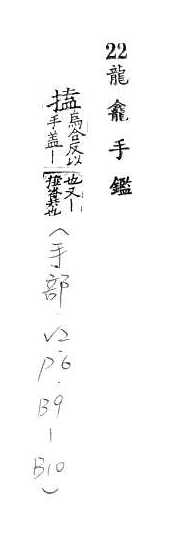 22 龍龕手鑑
搕烏合反以手盖丨也又丨
(手部.V2.P6.B9-B10)